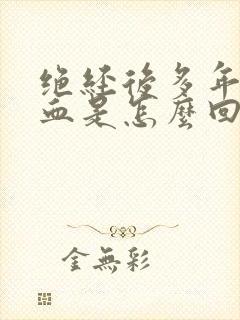 绝经後多年
血是怎麼回
金無彩